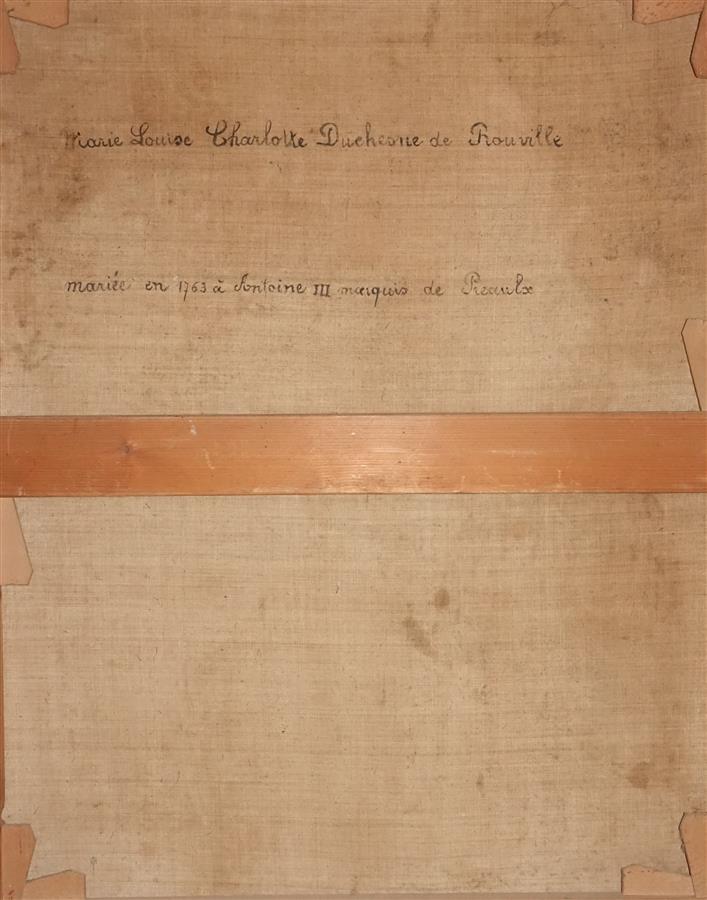 Marie Louise Charlotte Duchesne de Rouville
mariée en 1763 à Antoine III marquis de Preaulx